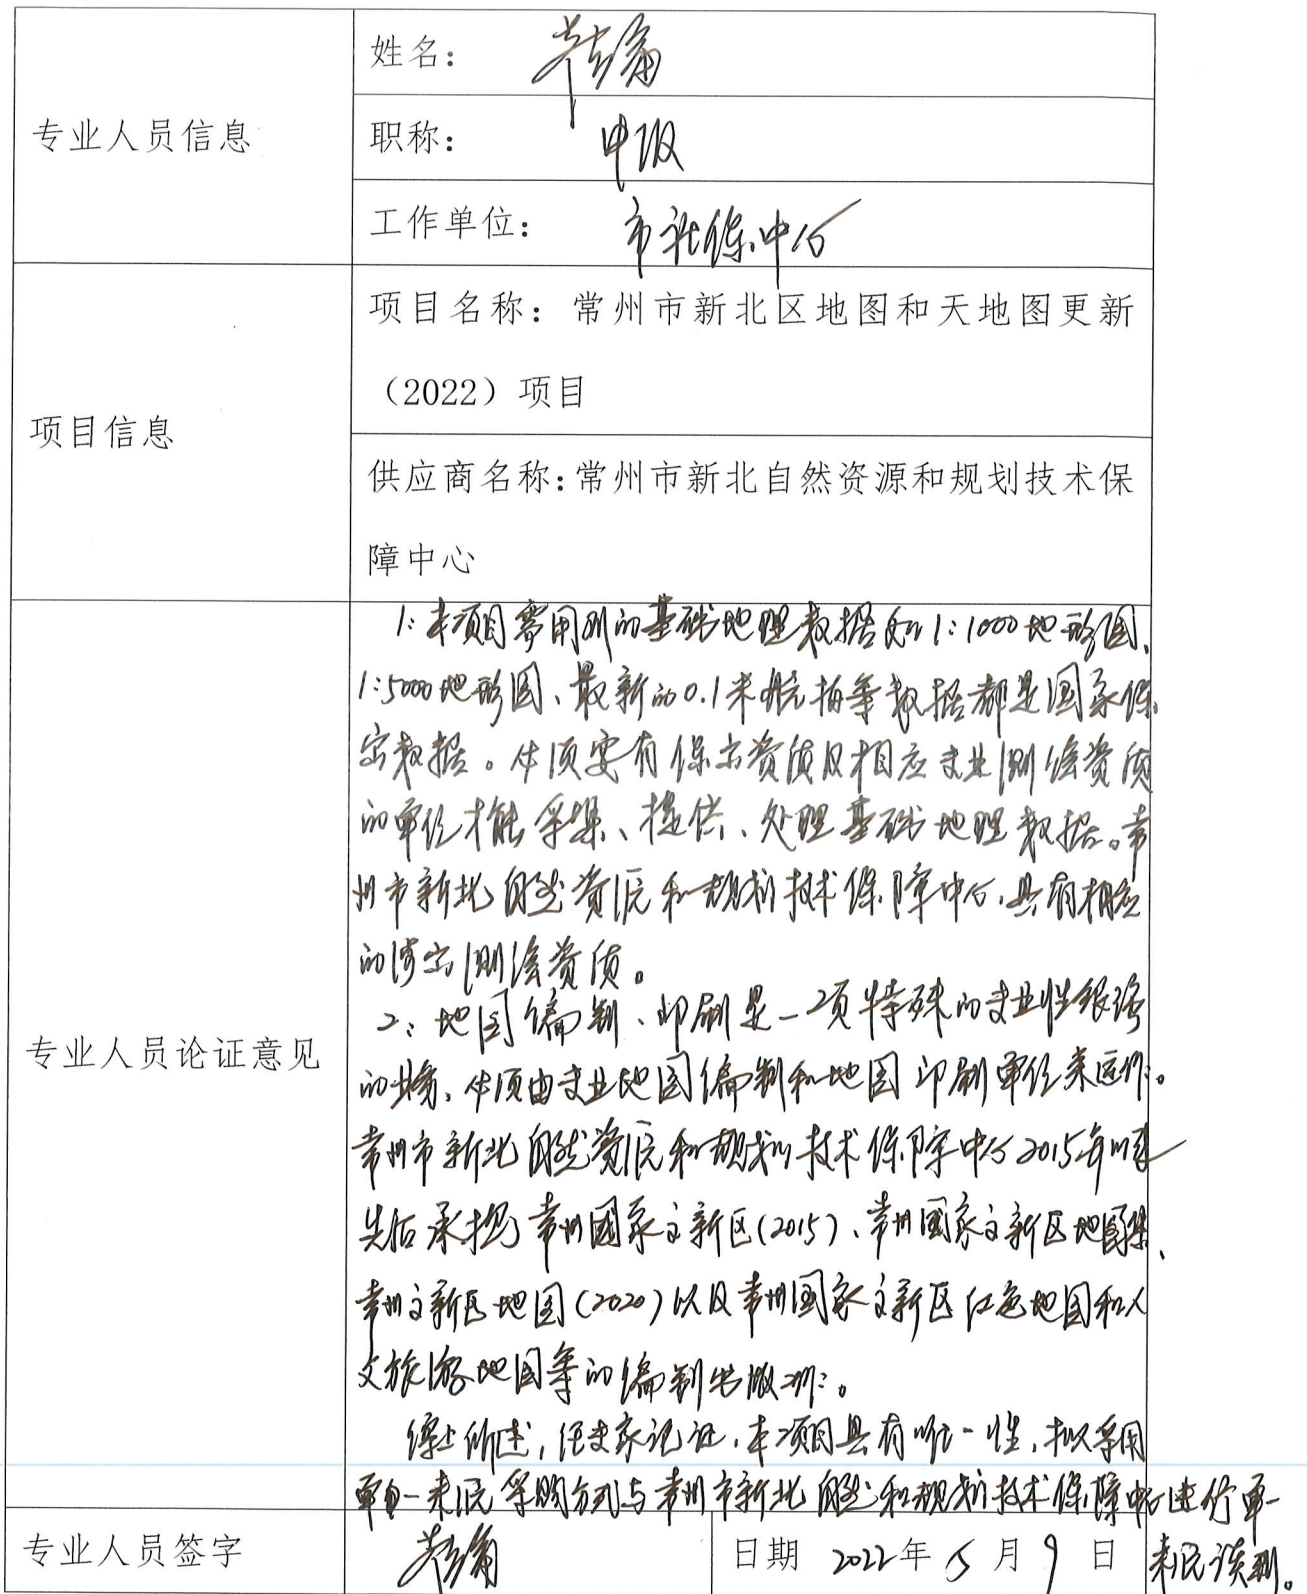 专业人员信息
姓名：
职称： 中级
工作单位： 市社保中心
项目信息
项目名称：常州市新北区地图和天地图更新
（2022）项目
供应商名称:常州市新北自然资源和规划技术保
障中心
专业人员论证意见
1：本项目需用到的基础地理数据如1：1000地形图、
1:5000地形图、最新的0.1米航拍等数据都是国家保
密数据。必须要有保密资质及相应专业测绘资质
的单位才能采集、提供、处理基础地理数据。常
州市新北自然资源和规划技术保障中心，具有相应
的保密测绘资质。
2：地图编制、印刷是一项特殊的专业性很强
的业务，必须由专业地图编制和地图印刷单位来运作。
常州市新北自然资源和规划技术保障中心2015年以来
先后承担了常州国家高新区(2015)、常州国家高新区地图集、
常州高新区地图(2020)以及常州国家高新区红色地图和人
文旅游地图等的编制出版工作。
综上所述，经专家论证，本项目具有唯一性，拟采用
单一来源采购方式与常州市新北自然和规划技术保障中心进行单一
来源谈判。
专业人员签字
日期 2022年 5 月 9 日